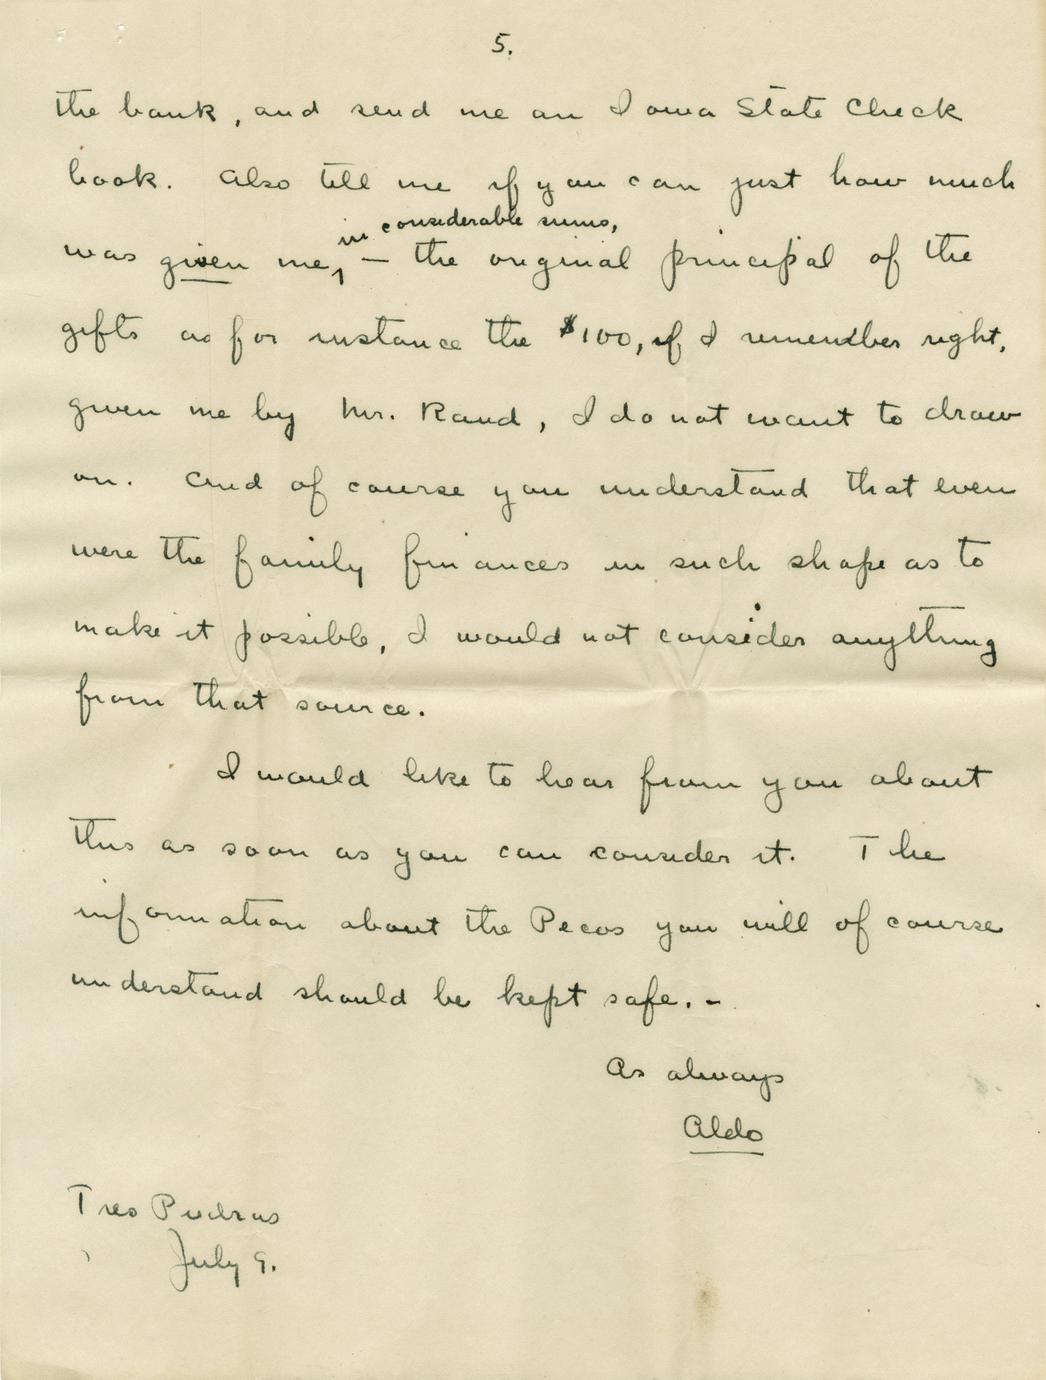 5.
the bank, and send me an Iowa State Check
book. Also tell me if you can just how much
in considerable sums,
was given me, — the original principal of the
gifts as for instance the $100, if I remember right,
given me by Mr. Rand, I do not want to draw
on. And of course you understand that even
were the family finances in such shape as to
make it possible, I would not consider anything
from that source.
I would like to hear from you about
this as soon as you can consider it. The
information about the Pecos you will of course
understand should be kept safe. –
As always
Aldo
Tres Piedras
July 9.